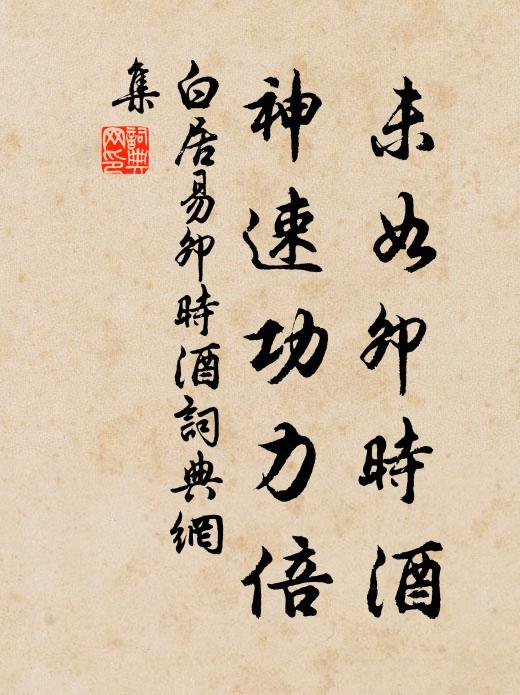 未如卯時酒
神速功力倍
白居易卯時酒詞典網
集
詞典
网印